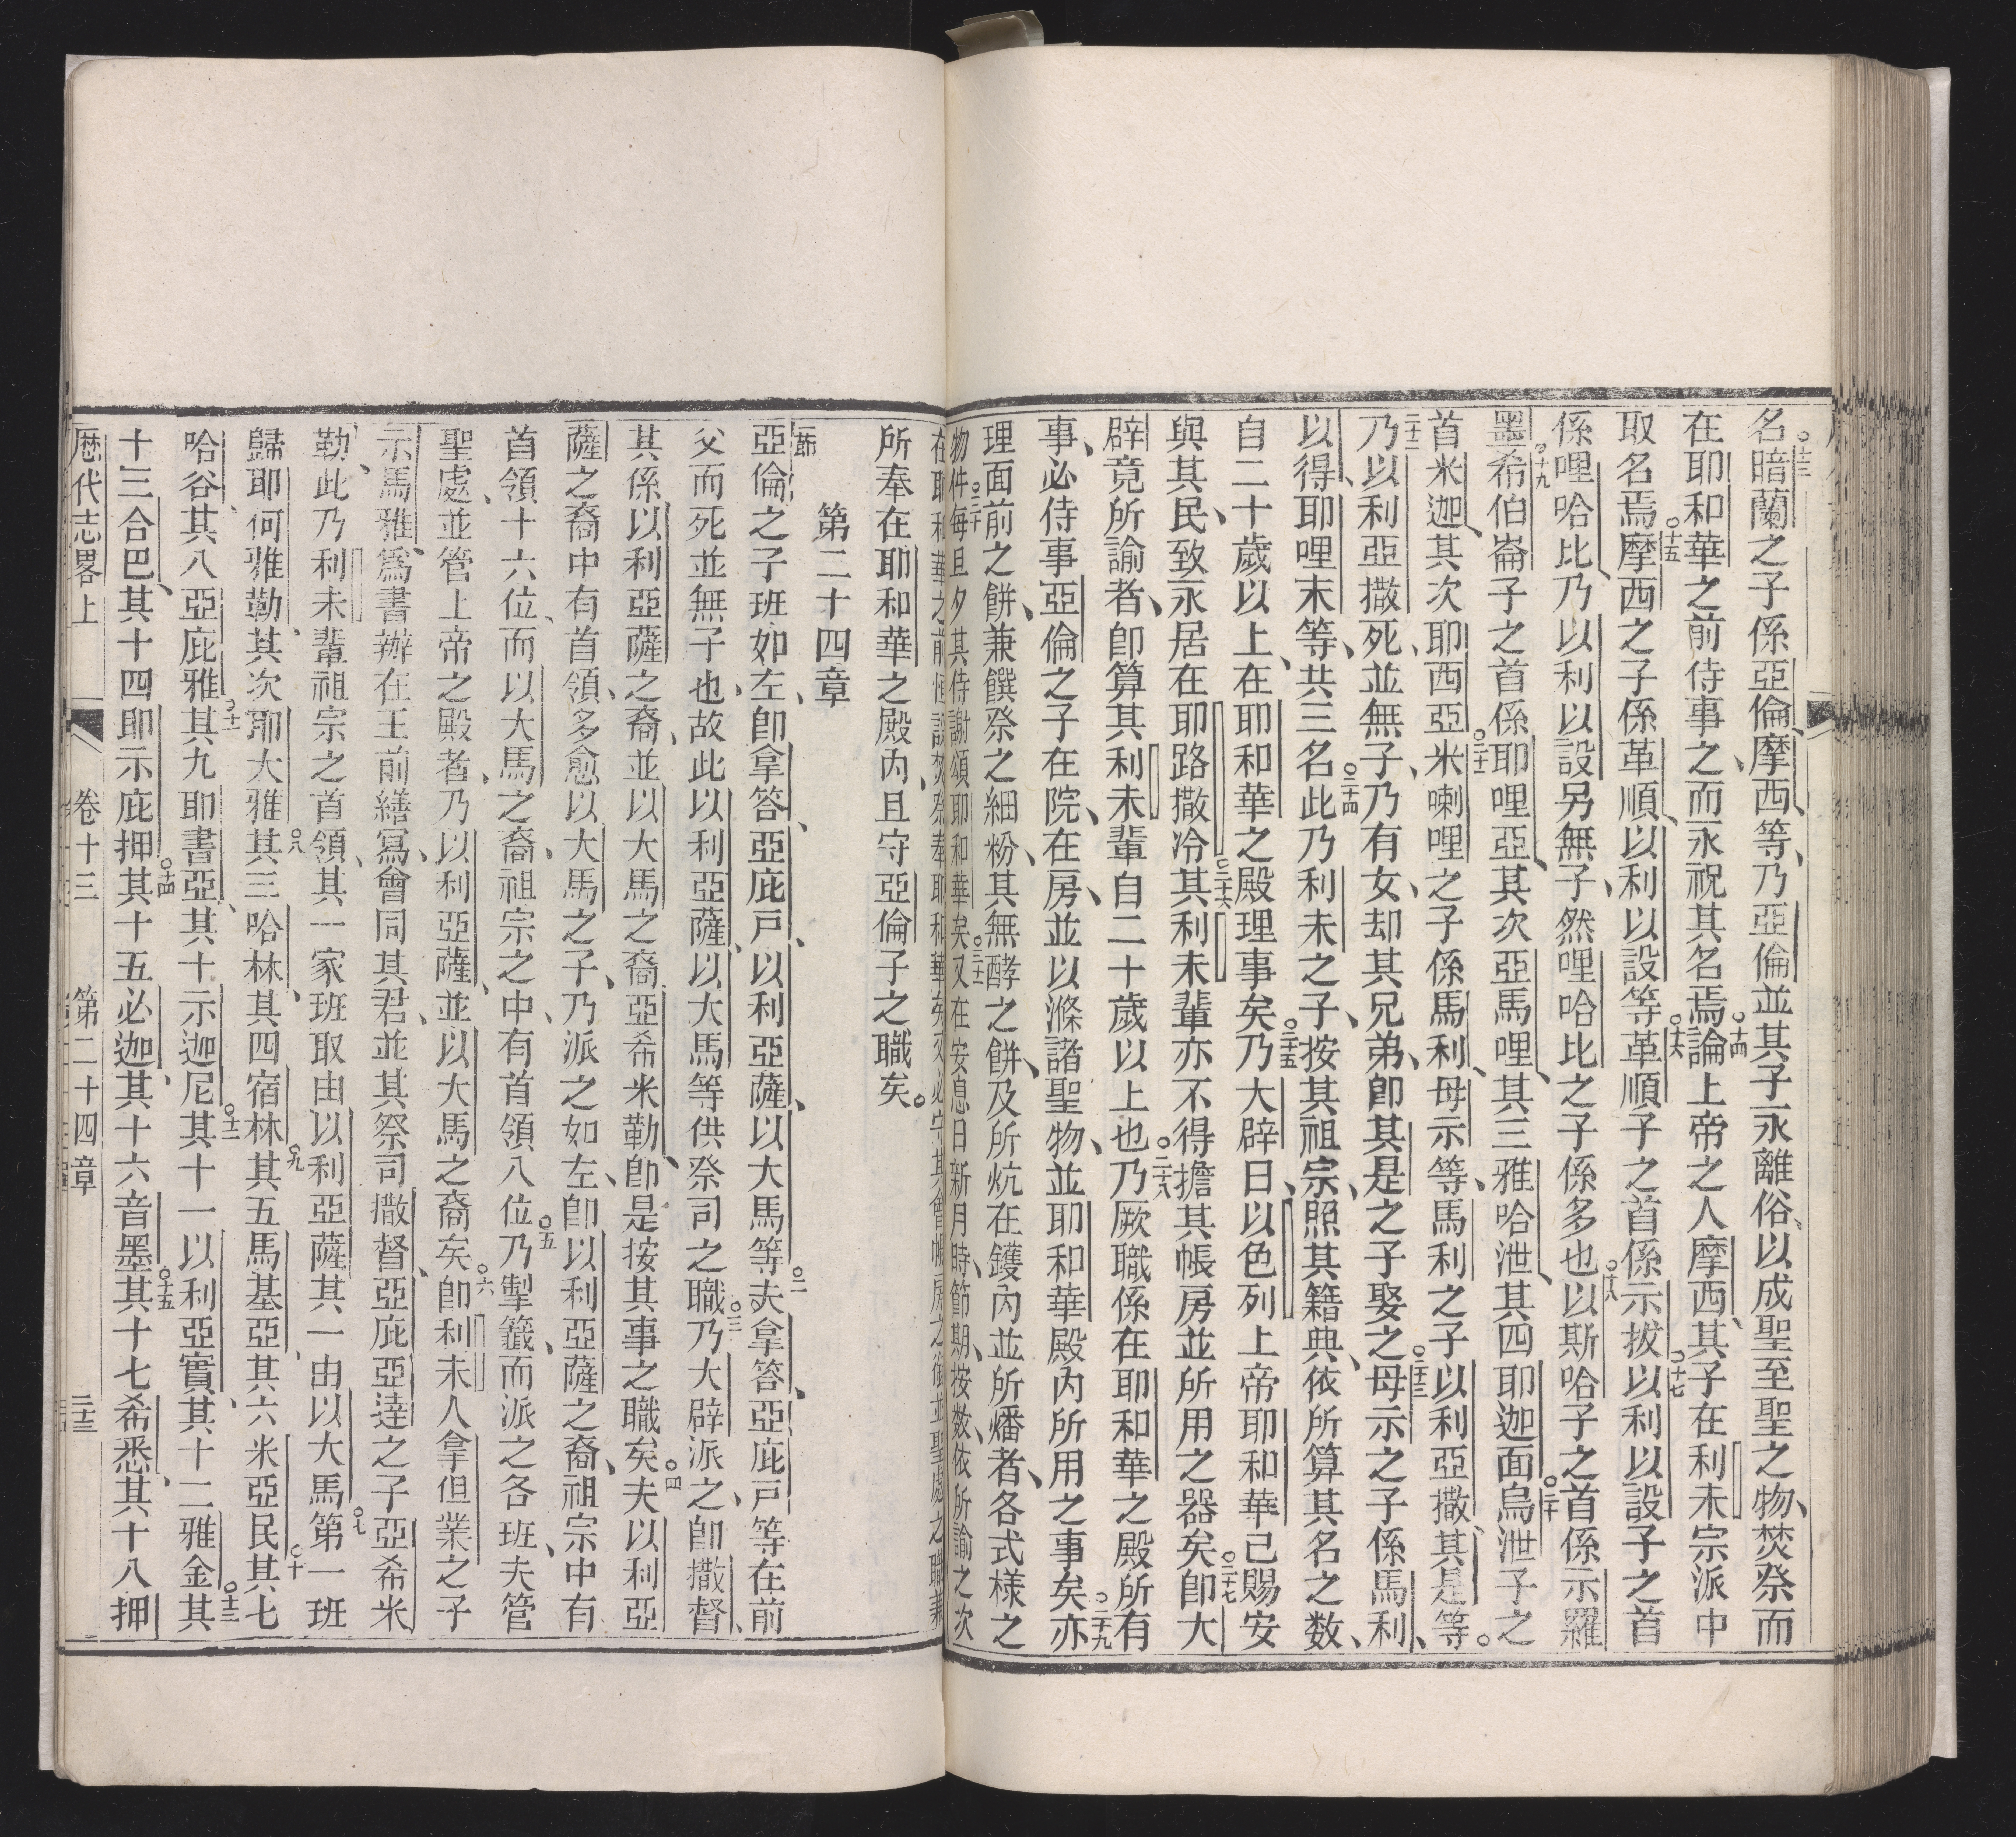 名暗蘭之子係亞倫摩西等、乃亞倫並其子永離俗、以成聖至聖之物、焚祭而
在耶和華之前侍事之、而永祝其名焉論上帝之人摩西、其子在利未宗派中
取名焉摩西之子係革順、以利以設等革順子之首係示拔以利以設子之首
係哩哈比、乃以利以設另無子、然哩哈比之子係多也以斯哈子之首係示羅
墨希伯崙子之首係耶哩亞、其次亞馬哩、其三雅哈泄、其四耶迦面烏泄子之
首米迦、其次耶西亞米喇哩之子係馬利、母示等、馬利之子以利亞撒、其是等。
乃以利亞撒死、並無子、乃有女、却其兄弟、即其是之子娶之母示之子係馬利、
以得、耶哩末等、共三名此乃利未之子、按其祖宗、照其籍典、依所算其名之数、
自二十歲以上、在耶和華之殿理事矣乃大辟日、以色列上帝耶和華己賜安
與其民、致永居在耶路撒冷其利未輩亦不得擔其帳房並所用之器矣即大
辟竟所諭者、即算其利未輩自二十歲以上也乃厥職係在耶和華之殿所有
事、必侍事亞倫之子在院、在房、並以滌諸聖物、並耶和華殿內所用之事矣亦
理面前之餅、兼饌祭之細粉、其無酵之餅、及所炕在鑊內並所燔者、各式樣之
物件每旦夕其侍謝頌耶和華矣又在安息日新月時、節期、按数、依所諭之次
在耶和華之前恒設焚祭奉耶和華矣又必守其會帳房之衛並聖處之職兼
所奉在耶和華之殿內、且守亞倫子之職矣。
第二十四章
亞倫之子班如左、即拿答、亞庇戸、以利亞薩、以大馬等夫拿答、亞庇戸等在前
父而死並無子也、故此以利亞薩、以大馬等供祭司之職乃大辟派之、即撒督、
其係以利亞薩之裔、並以大馬之裔亞希米勒、即是按其事之職矣夫以利亞
薩之裔中有首領、多愈以大馬之子、乃派之如左、即以利亞薩之裔、祖宗中有
首領十六位、而以大馬之裔、祖宗之中、有首領八位乃掣籤、而派之各班、夫管
聖處、並管上帝之殿者、乃以利亞薩、並以大馬之裔矣即利未人拿但業之子
示馬雅、爲書辦在王前繕寫、會同其君、並其祭司撒督、亞庇亞達之子亞希米
勒、此乃利未輩祖宗之首領、其一家班取由以利亞薩其一由以大馬第一班
歸耶何雅勒、其次耶大雅其三哈林、其四宿林其五馬基亞、其六米亞民其七
哈谷、其八亞庇雅其九耶書亞、其十示迦尼其十一以利亞實、其十二雅金其
十三合巴、其十四耶示庇押其十五必迦、其十六音墨其十七希悉、其十八押
歷代志畧上 卷十三 第二十四章 二十三